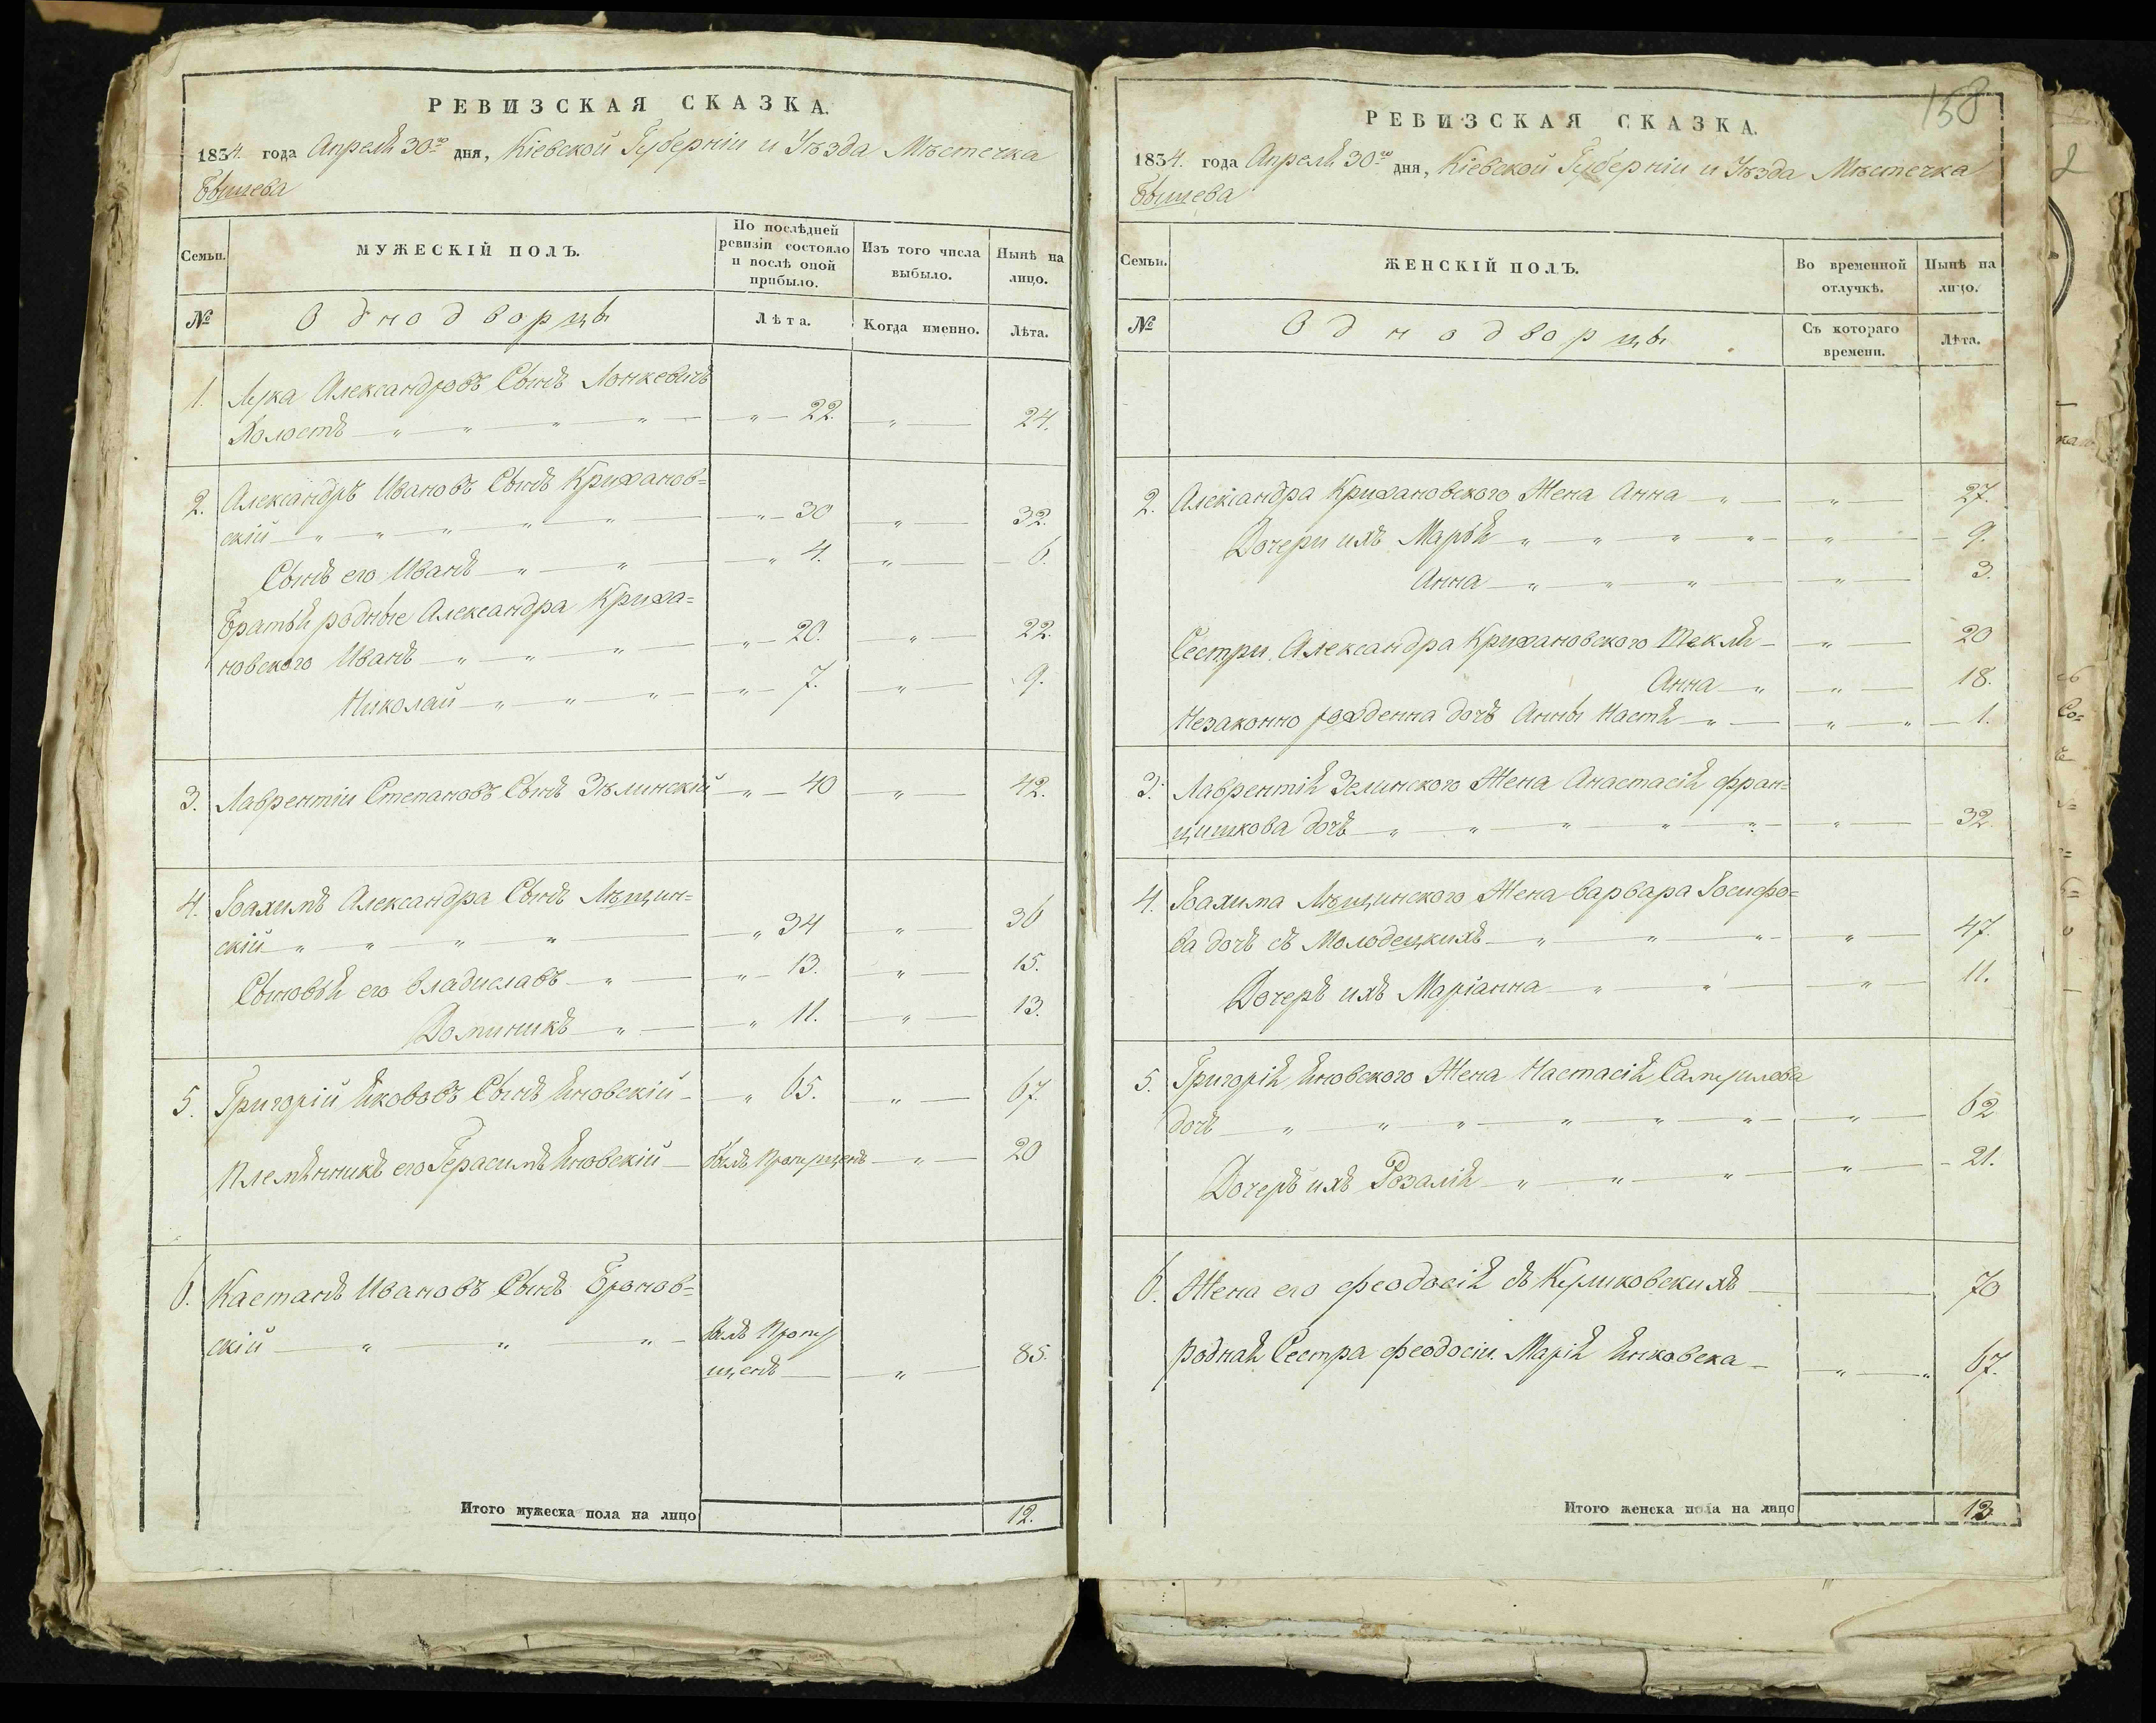 РЕВИЗСКАЯ СКАЗКА.
1834. года Апреля 30го дня, Кіевской Губерніи и Уѣзда Мѣстечка
Бышева
Семьи.
МУЖЕСКІЙ ПОЛЪ.
По послѣдней ревизіи состояло и послѣ оной прибыло.
Изъ того числа выбыло.
Нынѣ на лицо.
№
Однодворцы
Лѣта.
Когда именно.
Лѣта.
1. Лука Александровъ Сынъ Лонкевичъ
Холостъ — " — " — " — " — 22. — " — 24.
2. Александръ Ивановъ Сынъ Крижанов=
скій — " — " — " — " — " — 30 — " — 32.
Сынъ его Иванъ — " — " — 4. — " — 6.
Братья родные Александра Крижа=
новского Иванъ — " — " — " — 20. — " — 22.
Николай — " — " — " — 7. — " — 9.
3. Лаврентіи Степановъ Сынъ Зѣлинскій — " — 40 — " — 42.
4. Іоахимъ Александра Сынъ Лѣщин=
скій — " — " — " — " — 34 — " — 36
Сыновья его Владиславъ — " — 13. — " — 15.
Доминикъ — " — 11. — " — 13.
5. Григорій Якововъ Сынъ Яновскій — " 65. — " — 67.
Племянникъ его Герасимъ Яновскій — былъ Пропущенъ — " — 20
6. Каетанъ Ивановъ Сынъ Бронов=
скій — " — " — " — былъ Пропу
щенъ — " — 85.
Итого мужеска пола на лицо 12.
158
РЕВИЗСКАЯ СКАЗКА.
1834. года Апреля 30го дня, Кіевской Губерніи и Уѣзда Мѣстечка
Бышева
Семьи.
ЖЕНСКІЙ ПОЛЪ.
Во временной отлучкѣ.
Нынѣ на лицо.
№
Однодворцы
Съ котораго времени.
Лѣта.
2. Александра Крижановского Жена Анна — " — " — 27.
Дочери ихъ Марья — " — " — " — " — 9.
Анна — " — " — " — " — 3.
Сестри Александра Крижановского Текля — " — 20
Анна — " — " — 18.
Незаконно рожденна дочь Анны Настя — " — " — " — 1.
3. Лаврентія Зелинского Жена Анастасія Фран=
цишкова дочь — " — " — " — " — " — " — 32.
4. Іоахима Лѣщинского Жена Варвара Іосифо=
ва дочь съ Молодецкихъ — " — " — " — " — 47.
Дочерь ихъ Маріанна — " — " — " — 11.
5. Григорія Яновского Жена Настасія Самуилова
дочь — " — " — " — " — " — " — " — 62
Дочерь ихъ Розалія — " — " — " — " — 21.
6. Жена его Феодосія съ Куликовскихъ — 70
Родная Сестра Феодосіи Марія Янковска — " — " 67.
Итого женска пола на лицо 13.